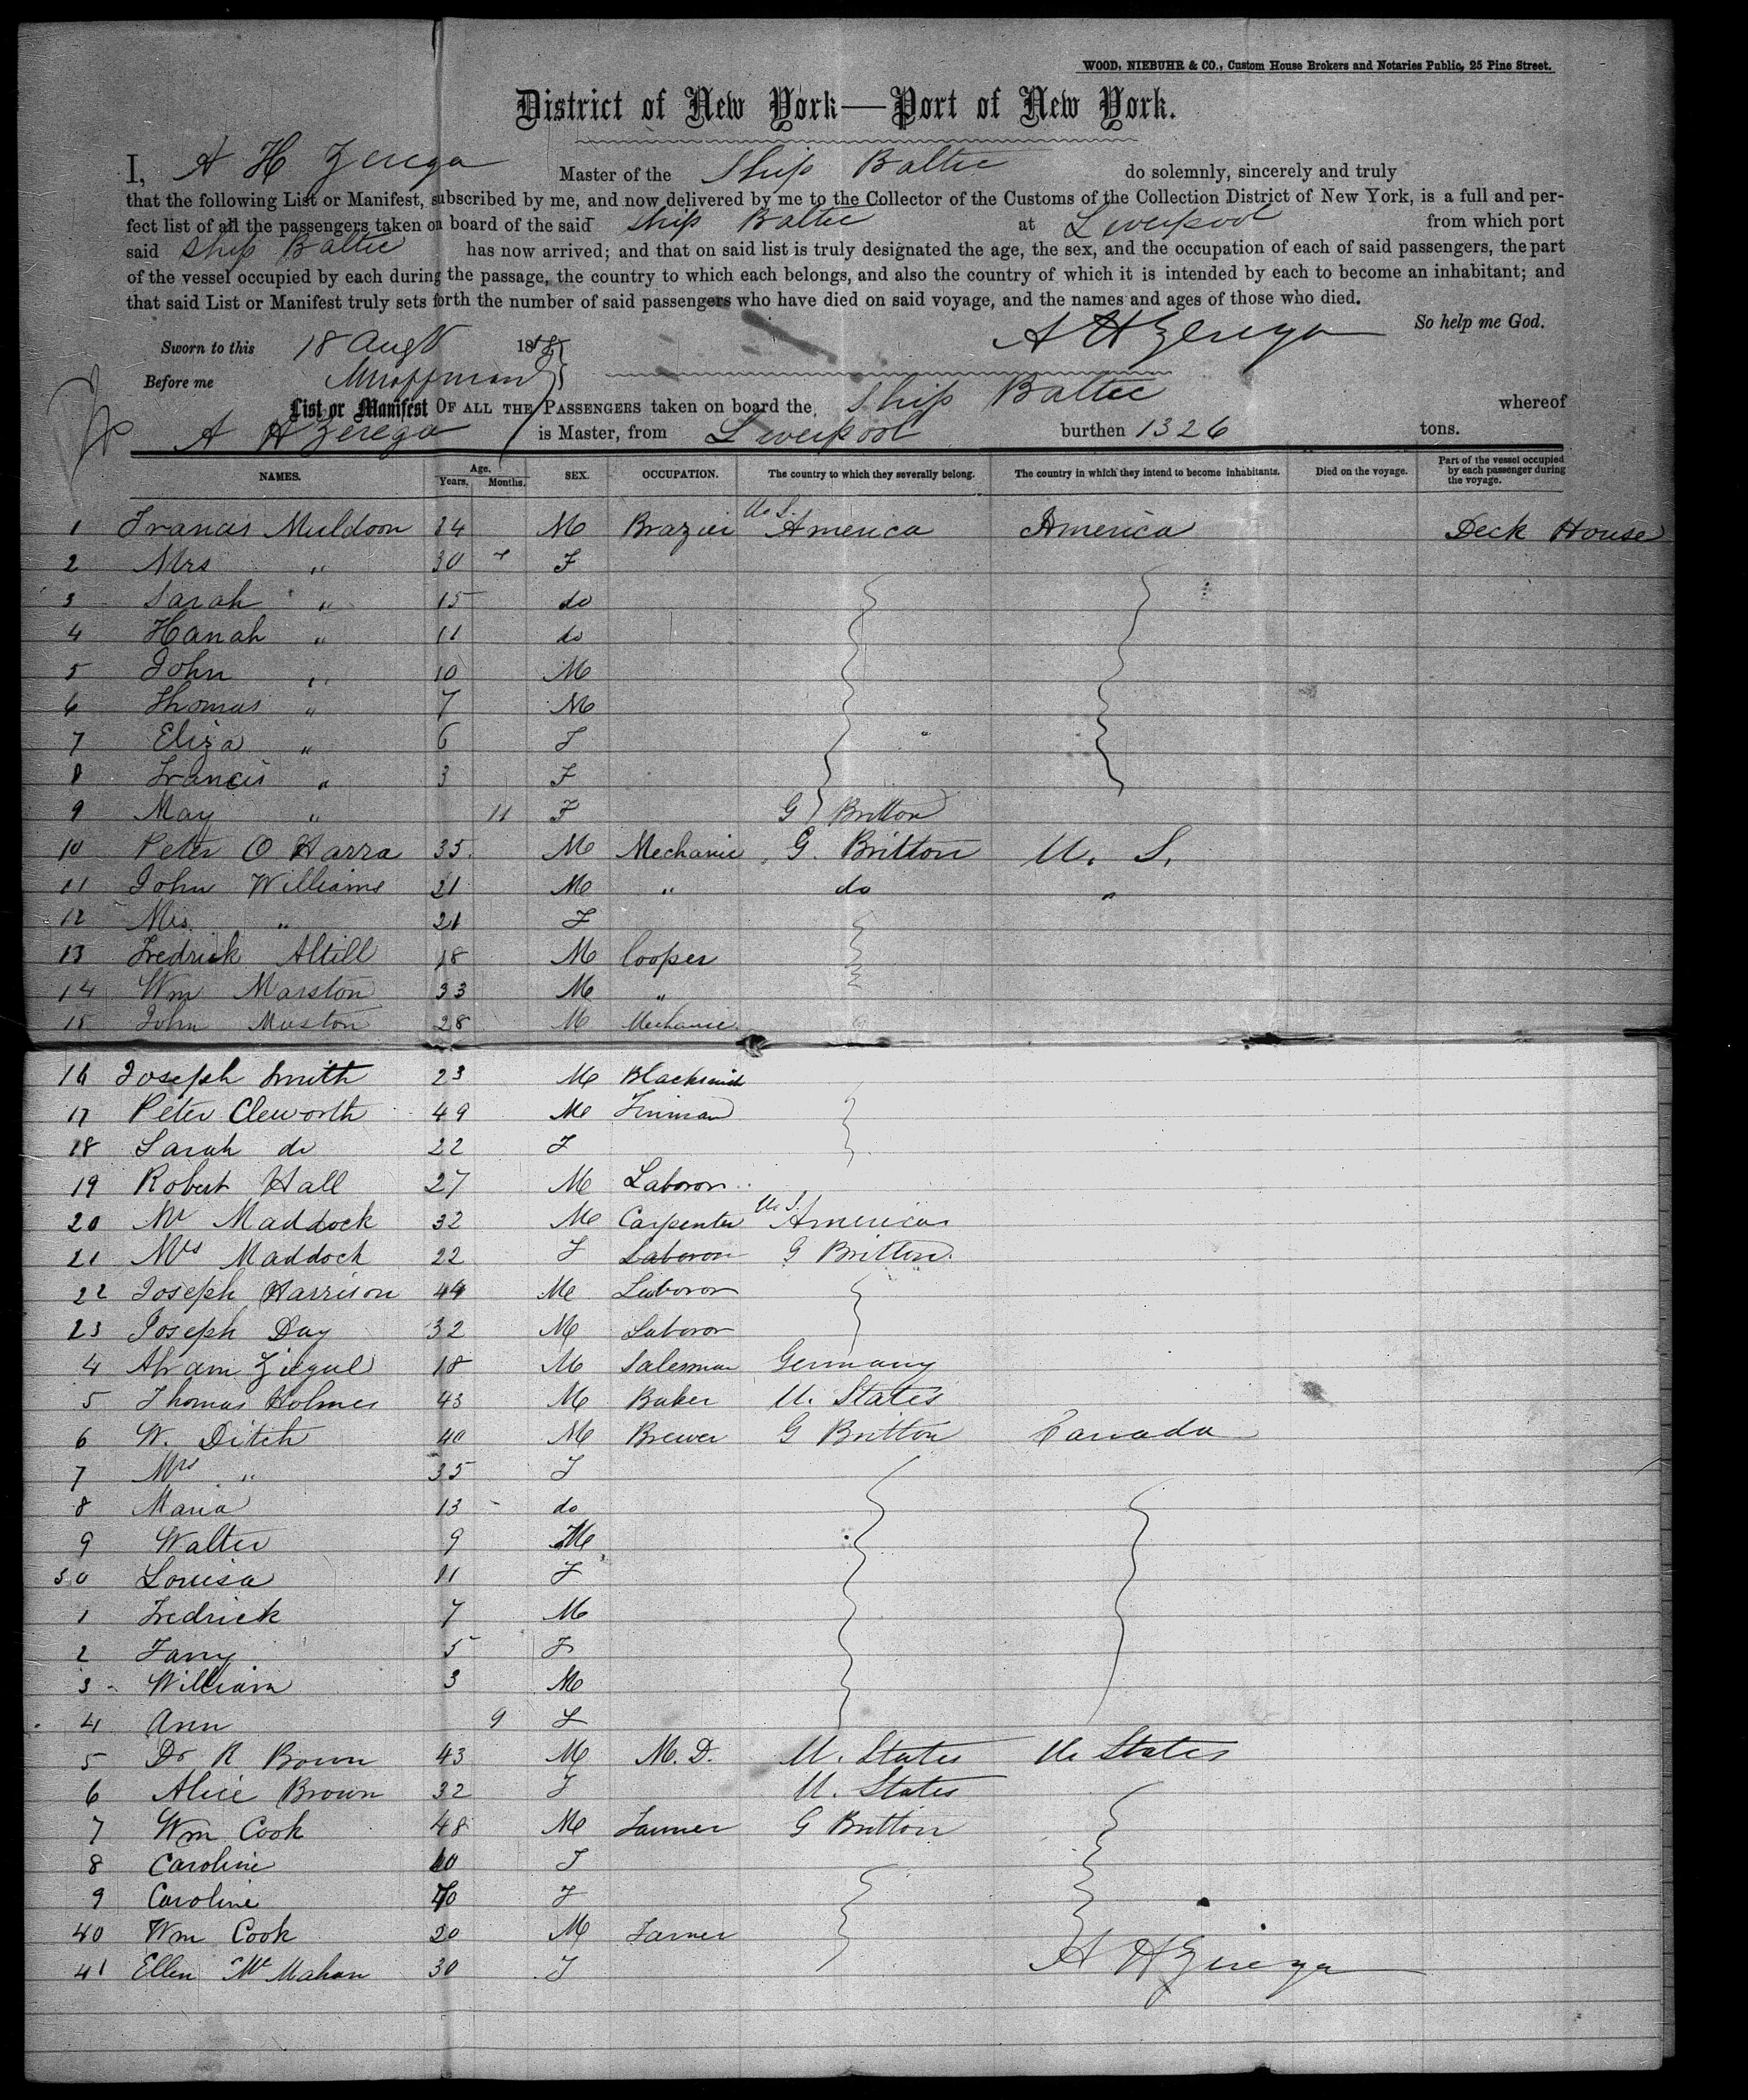 WOOD, NIEBUHR & CO., Custom House Brokers and Notaries Public, 25 Pine Street.
District of New York—Port of New York.
I, A H Zerega Master of the Ship Baltic do solemnly, sincerely and truly
that the following List or Manifest, subscribed by me, and now delivered by me to the Collector of the Customs of the Collection District of New York, is a full and per-
fect list of all the passengers taken on board of the said Ship Baltic at Liverpool from which port
said Ship Baltic has now arrived; and that on said list is truly designated the age, the sex, and the occupation of each of said passengers, the part
of the vessel occupied by each during the passage, the country to which each belongs, and also the country of which it is intended by each to become an inhabitant; and
that said List or Manifest truly sets forth the number of said passengers who have died on said voyage, and the names and ages of those who died.
A H Zerega So help me God.
Sworn to this 18 Augt 18
Before me
List or Manifest OF ALL THE PASSENGERS taken on board the Ship Baltic whereof
A H Zerega is Master, from Liverpool burthen 1326 tons.
NAMES. Age. Years. Months. SEX. OCCUPATION. The country to which they severally belong. The country in which they intend to become inhabitants. Died on the voyage. Part of the vessel occupied by each passenger during the voyage.
1 Francis Muldoon 34 M Brazier U.S. America America Deck House
2 Mrs " 30 F
3 Sarah " 15 do
4 Hanah " 11 do
5 John " 10 M
6 Thomas " 7 M
7 Eliza " 6 F
8 Francis " 3 F
9 May " 11 F G Britton
10 Peter O Harra 35 M Mechanic G. Britton U. S.
11 John Williams 21 M " do "
12 Mrs. " 21 F
13 Fredrick Altill 18 M Cooper
14 Wm Marston 33 M "
15 John Muston 28 M Mechanic
16 Joseph Smith 23 M Blacksmith
17 Peter Cleworth 49 M
18 Sarah do 22 F
19 Robert Hall 27 M Laboror
20 Mr Maddock 32 M Carpenter U.S. America
21 Mrs Maddock 22 F Laboror G Britton
22 Joseph Harrison 44 M Laboror
23 Joseph Day 32 M Laboror
4 Abram Ziegel 18 M Salesman Germany
5 Thomas Holmes 43 M Baker U. States
6 W. Ditch 40 M Brewer G Britton Canada
7 Mrs " 35 F
8 Maria 13 do
9 Walter 9 M
30 Louisa 11 F
1 Fredrick 7 M
2 Fanny 5 F
3 William 3 M
4 Ann 9 F
5 Dr R Brown 43 M M. D. U. States U. States
6 Alice Brown 32 F U. States
7 Wm Cook 48 M Farmer G Britton
8 Caroline 40 F
9 Caroline F
40 Wm Cook 20 M Farmer
41 Ellen McMahan 30 F
A H Zerega